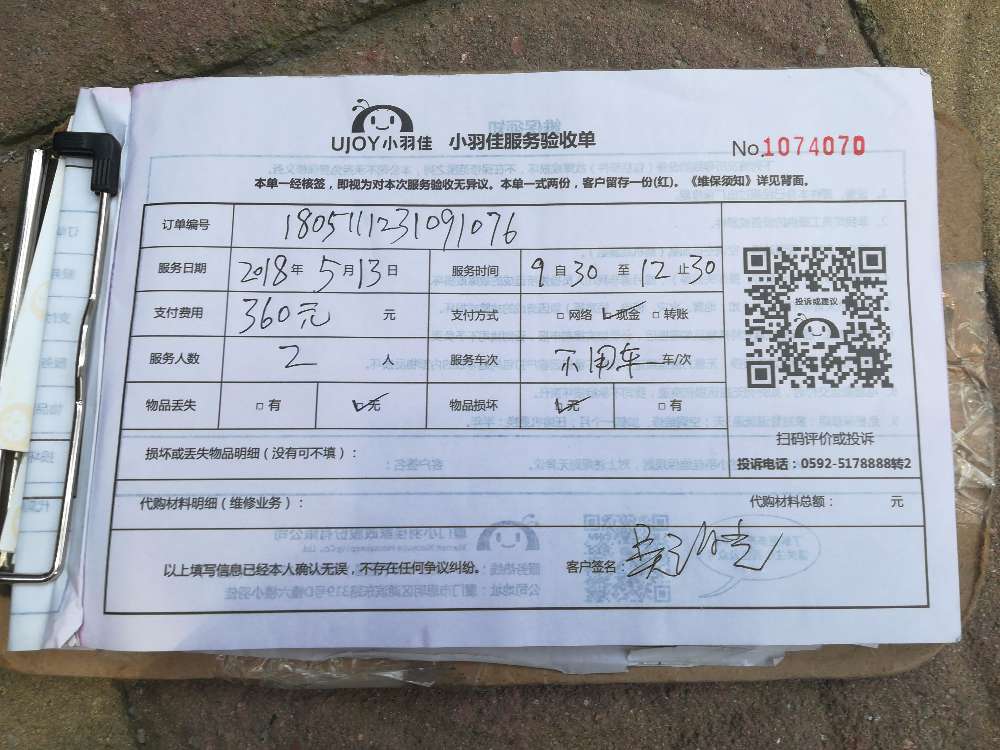 UJOY小羽佳 小羽佳服务验收单
No.1074070
本单一经核签，即视为对本次服务验收无异议。本单一式两份，客户留存一份(红)。《维保须知》详见背面。
订单编号 1805111231091076
服务日期 2018年 5月13日 服务时间 9自30至12止30
支付费用 360元 元 支付方式 □网络 □现金 □转账
服务人数 2 人 服务车次 不用车 车/次
物品丢失 □有 □无 物品损坏 □无 □有
投诉或建议
扫码评价或投诉
投诉电话：0592-5178888转2
损坏或丢失物品明细（没有可不填）：
代购材料明细（维修业务）： 代购材料总额： 元
以上填写信息已经本人确认无误，不存在任何争议纠纷。 客户签名：